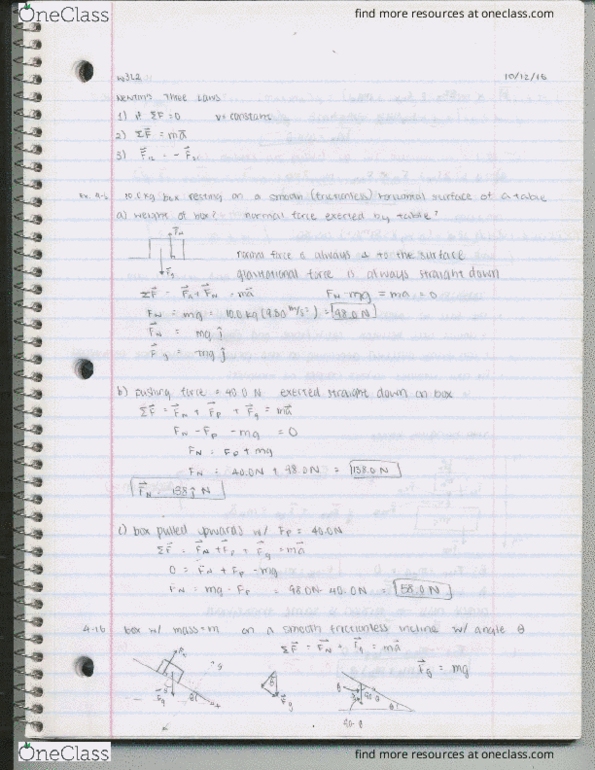 OneClass
find more resources at oneclass.com
10/12/16
NEWTON'S THREE LAWS
1) if ΣF = 0 v = constant
2) ΣF⃗ = ma⃗
3) F⃗₁₂ = -F⃗₂₁
Ex. 4-6 10.0 kg box resting on a smooth (frictionless) horizontal surface of a table
a) weight of box? normal force exerted by table?
F_N
normal force is always ⊥ to the surface
F⃗g
gravitational force is always straight down
ΣF⃗ = F⃗g + F⃗_N = ma⃗ F_N - mg = ma = 0
F_N = mg = 10.0 kg (9.80 m/s²) = 98.0 N
F⃗_N = mg ĵ
F⃗g = -mg ĵ
b) pushing force = 40.0 N exerted straight down on box
ΣF⃗ = F⃗_N + F⃗_P + F⃗g = ma⃗
F_N - F_P - mg = 0
F_N = F_P + mg
F_N = 40.0N + 98.0N = 138.0 N
F⃗_N = 138 ĵ N
c) box pulled upwards w/ F_P = 40.0N
ΣF⃗ = F⃗_N + F⃗_P + F⃗g = ma⃗
0 = F_N + F_P - mg
F_N = mg - F_P = 98.0N - 40.0N = 58.0 N
4-16 box w/ mass = m on a smooth frictionless incline w/ angle θ
ΣF⃗ = F⃗_N + F⃗g = ma⃗
F⃗g = mg
F_N y
F⃗g θ x
θ F⃗g
θ 90-θ θ
90-θ
OneClass
find more resources at oneclass.com